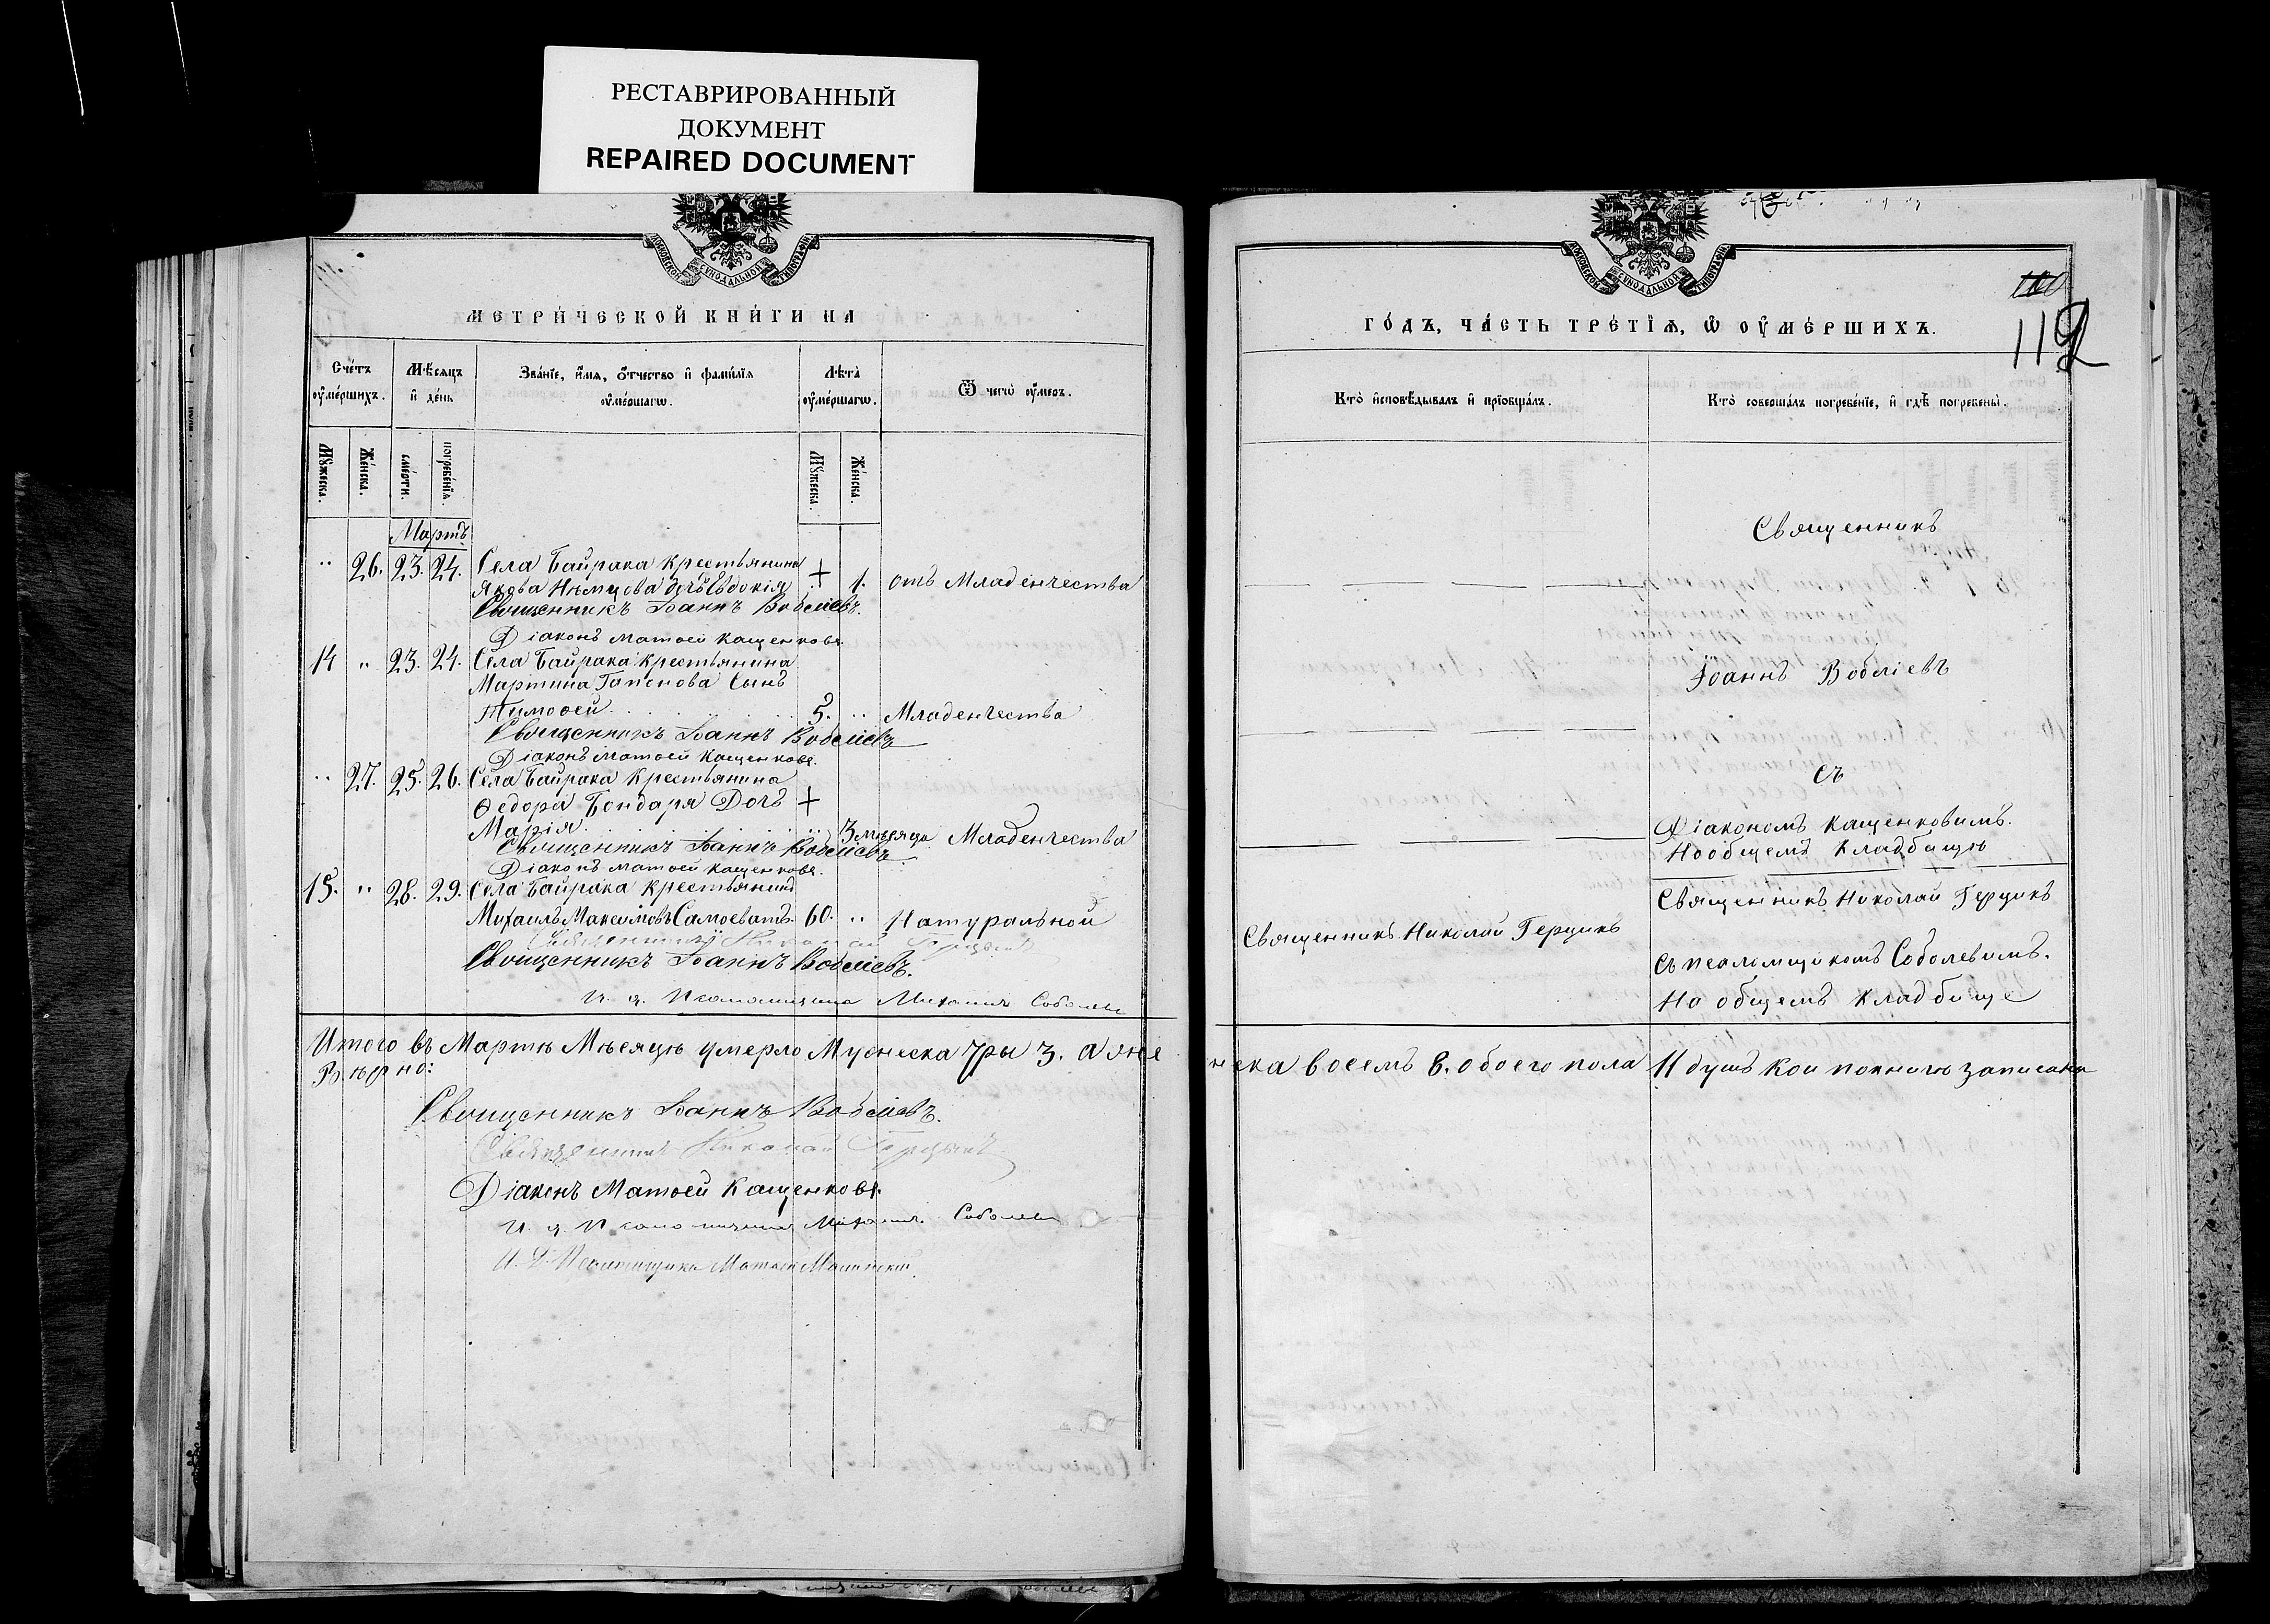 РЕСТАВРИРОВАННЫЙ
ДОКУМЕНТ
REPAIRED DOCUMENT
МОСКОВСКОЙ СѴНОДАЛЬНОЙ ТИПОГРАФІИ
МЕТРИ́ЧЕСКОЙ КНИ́ГИ НА
Сче́тъ ᲂу҆ме́ршихъ.
Мѣ́сѧцъ и҆ де́нь
Зва́нїе, и҆́мѧ, ѻ҆́тчество и҆ фами́лїѧ ᲂу҆ме́ршагѡ.
Лѣ́та ᲂу҆ме́ршагѡ.
Ѿ чегѡ̀ ᲂу҆́меръ.
Мꙋ́жеска.
Же́нска.
сме́рти.
погребе́нїѧ.
Мꙋ́жеска.
Же́нска.
Мартъ
" 26. 23. 24. Села Байрака крестьянина
Якова Нѣмцова дочь Евдокія " 1. отъ Младенчества
Священникъ Іоаннъ Воблієвъ.
Діаконъ Матѳей Кащенковъ.
14 " 23. 24. Села Байрака крестьянина
Мартина Гапонова Сынъ
Тимоѳей 5. " Младенчества
Священникъ Іоаннъ Воблієвъ
Діаконъ Матѳей Кащенковъ.
" 27. 25. 26. Села Байрака крестьянина
Ѳедора Бондаря Дочь
Марія " 3 мѣсяца Младенчества
Священникъ Іоаннъ Воблієвъ
Діаконъ Матѳей Кащенковъ.
15. " 28. 29. Села Байрака крестьянинъ
Михаилъ Максимовъ Самоеватъ 60. " Натуральной
Священникъ Николай Герцикъ
Священникъ Іоаннъ Воблієвъ.
И. д. Псаломщика Михаилъ Соболевъ
Итого въ Мартѣ Мѣсяцѣ умерло Мужеска три 3. а жен
Вѣрно:
Священникъ Іоаннъ Воблієвъ.
Священникъ Николай Герцикъ
Діаконъ Матѳей Кащенковъ.
И. д. Псаломщика Михаилъ Соболевъ
И. д. Псаломщика Матѳей
МОСКОВСКОЙ СѴНОДАЛЬНОЙ ТИПОГРАФІИ
112
ГО́ДЪ, ЧА́СТЬ ТРЕ́ТЇѦ, Ѡ҆ ОУ҆МЕ́РШИХЪ.
Кто̀ и҆сповѣ́дывалъ и҆ прїѡбща́лъ.
Кто̀ соверша́лъ погребе́нїе, и҆ гдѣ̀ погребены̀.
Священникъ
Іоаннъ Воблієвъ
съ
Діакономъ Кащенковимъ.
На общемъ кладбищѣ
Священникъ Николай Герцикъ
Священникъ Николай Герцикъ
съ псаломщикомъ Соболевимъ.
На общемъ кладбище
нска восемь 8. обоего пола 11 душъ кои по книгѣ записани